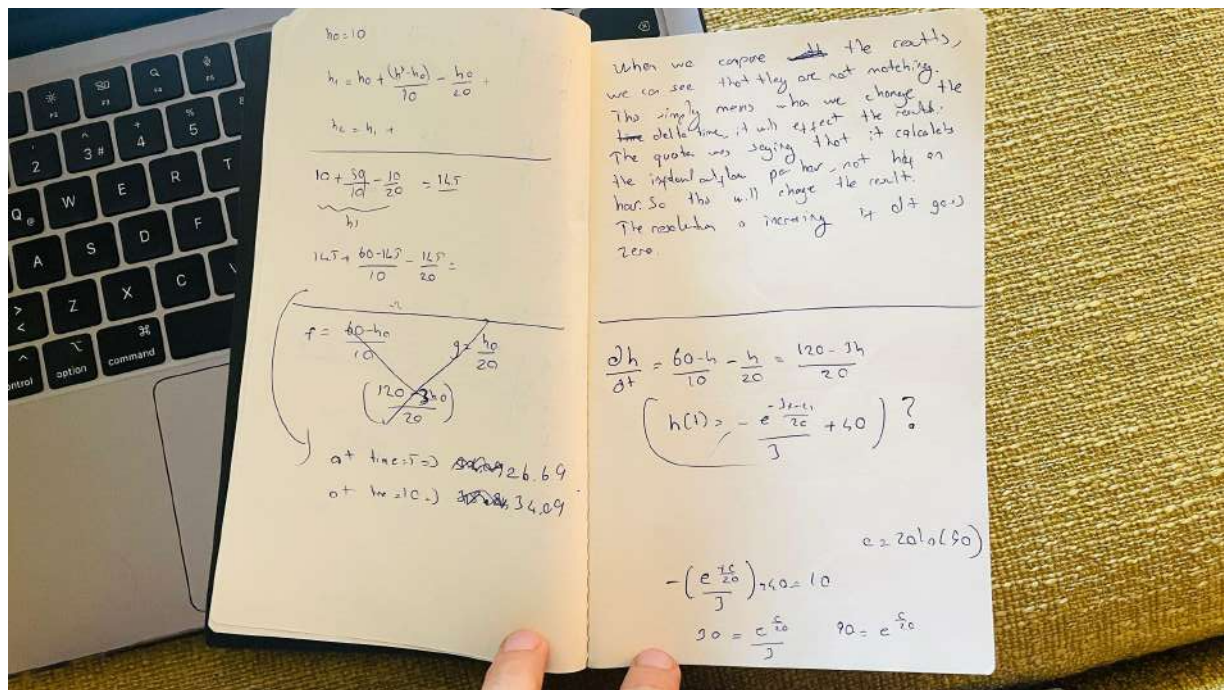 h₀ = 10
h₁ = h₀ + (h*-h₀)/10 - h₀/20 +
h₂ = h₁ +
10 + 50/10 - 10/20 = 14.5
h₁
14.5 + 60-14.5/10 - 14.5/20 =
f = 60-h₀/10 g = h₀/20
(120-3h₀/20)
at time=5=> 26.69
at time=10=> 34.09
When we compare the results,
we can see that they are not matching.
This simply means when we change the
time delta time, it will effect the results.
The quota was saying that it calculets
the per hour, not half an
hour. So this will change the result.
The resolution is increasing if dt goes
zero.
dh/dt = 60-h/10 - h/20 = 120-3h/20
h(t) = - e /3 + 40 ) ?
c = 20ln(90)
-(e^c/20/3) + 40 = 10
30 = e^c/20/3 90 = e^c/20
Q
W
E
R
T
A
S
D
F
Z
X
C
2
3 #
4
5
F2
F3
F4
F5
option
command